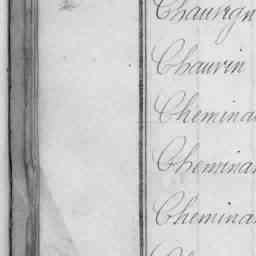 Chauvign
Chauvin
Chemina
Cheminan
Cheminan